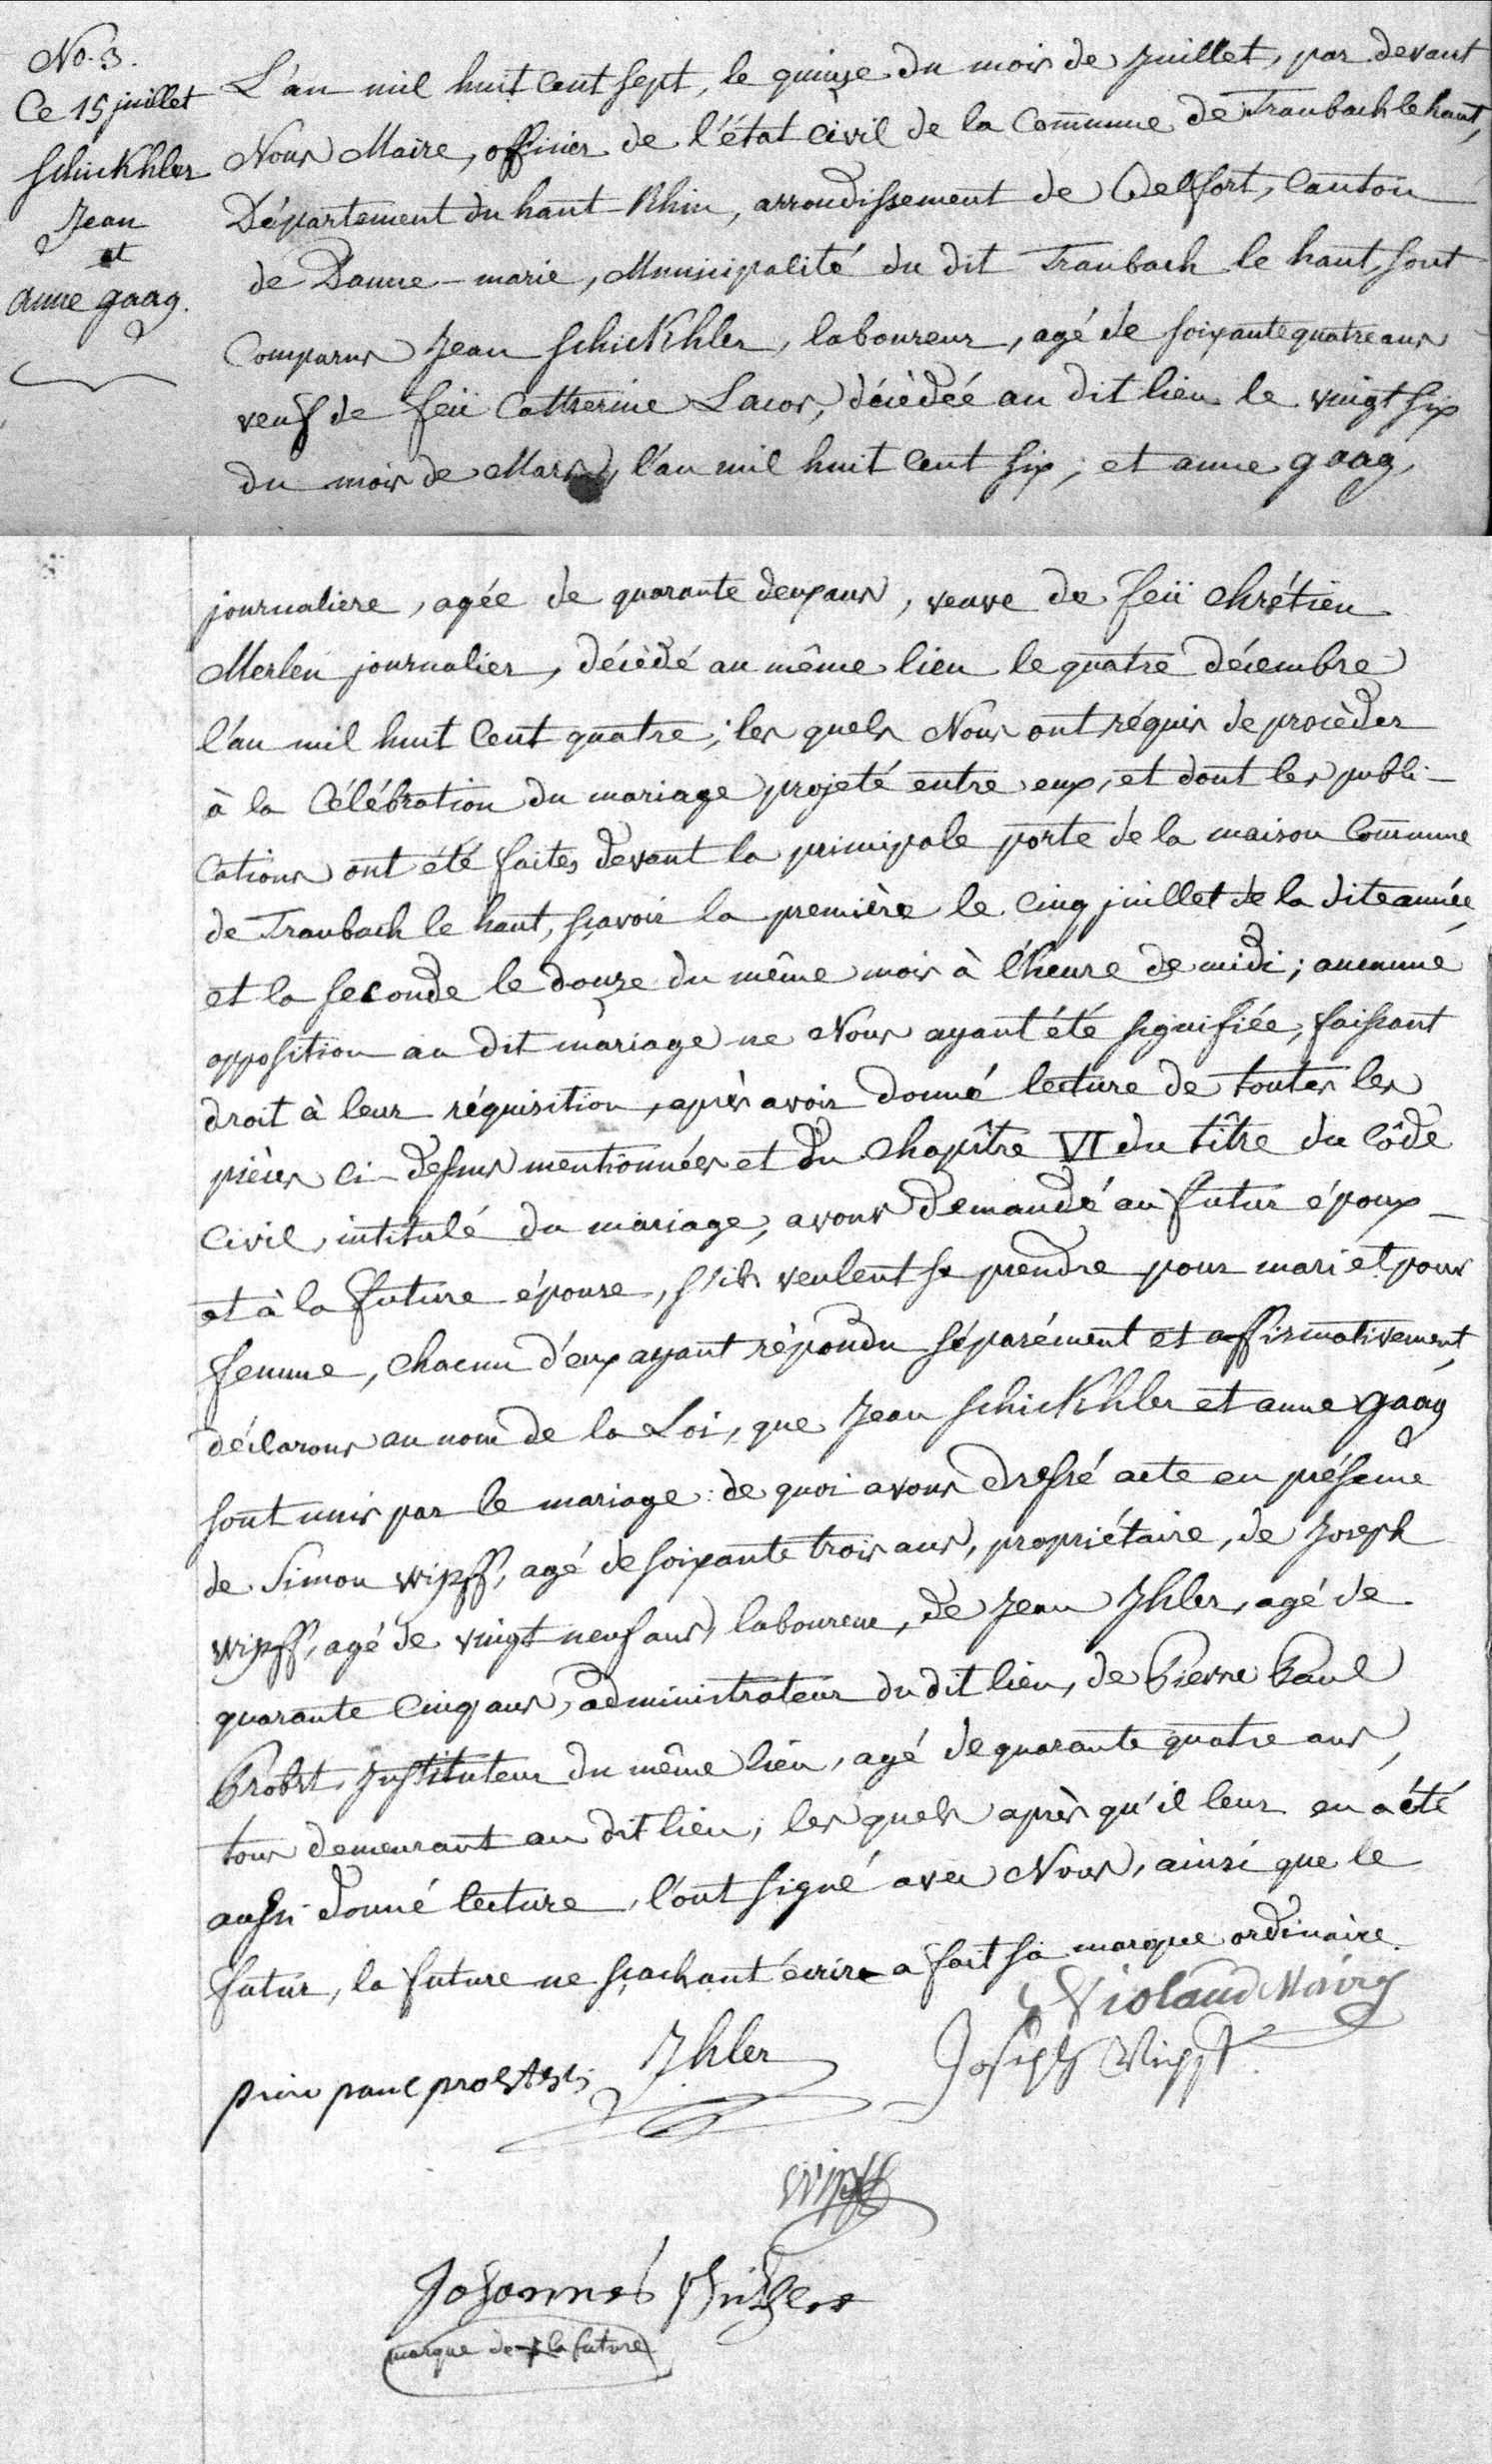 No. 3.
Ce 15 juillet
Schickhler
Jean
et
anne gaag.
L'an mil huit Cent Sept, le quinze du mois de Juillet, par devant
Nous Maire, officier de l'état Civil de la Com̄une de Traubach le haut,
Département du haut-Rhin, arrondissement de Belfort, Canton
de Danne-marie, Municipalité du dit Traubach le haut, sont
Comparus Jean Schickhler, laboureur, agé de soixante quatre ans
veuf de feü Catherine Lacos, décèdée au dit lieu le vingt six
du mois de Mars, l'an mil huit Cent six; et anne gaag,
journaliere, agée de quarante deux ans, veuve de feü Chrétien
Merlen journalier, décèdé au même lieu le quatre décembre
l'an mil huit Cent quatre; les quels Nous ont réquis de procèder
à la Célébration du mariage projeté entre eux, et dont les publi-
cations ont été faites devant la principale porte de la maison Commune
de Traubach le haut, sçavoir la première le Cinq juillet de la dite année,
et la seconde le douze du même mois à l'heure de midi; aucunne
opposition au dit mariage ne Nous ayant été signifiée, faissant
droit à leur réquisition, après avoir donné lecture de toutes les
pièces ci-dessus mentionnées et du Chapître VI du tître du Côde
Civil, intitulé du mariage, avons demandé au futur époux
et à la future épouse, s'ils veulent se prendre pour mari et pour
femme, Chacun d'eux ayant répondu séparément et affirmativement,
déclarons au nom de la Loi, que Jean Schickhler et anne gaag
sont unis par le mariage: de quoi avons dressé acte en présence
de Simon Wipff, agé de soixante trois ans, propriétaire, de Joseph
Wipff, agé de vingt neuf ans, laboureur, de Jean Ihler, agé de
quarante Cinq ans, administrateur du dit lieu, de Pierre Paul
Probst, Instituteur du même lieu, agé de quarante quatre ans,
tous demeurant au dit lieu; les quels après qu'il leur en a été
aussi donné lecture, l'ont signé avec Nous, ainsi que le
futur, la future ne sçachant écrire a fait sa marque ordinaire.
Violand Maire
Ihler
Joseph Wipff.
paul
Wipff
Johannes Schickler
marque de + la future